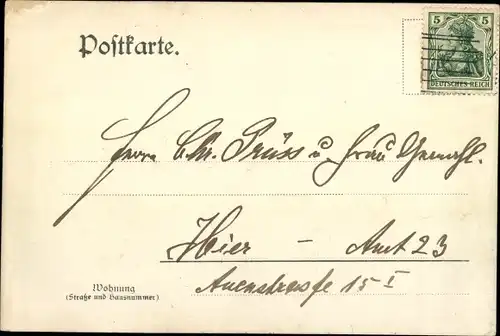 5 5
DEUTSCHES REICH
Postkarte.
Herrn Chr. Prüss u. Frau Gemahl.
Hier - Amt 23
Auenstrasse 15 I
Wohnung
(Straße und Hausnummer)